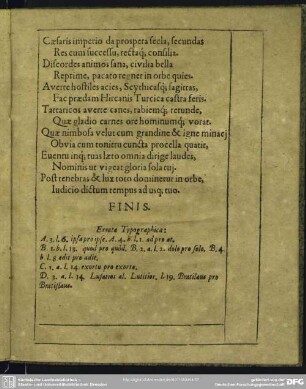 Cæsaris imperio da prospera secla, secundas
Res cum successu, rectaq; consilia.
Discordes animos sana, civilia bella
Reprime, pacato regnet in orbe quies.
Averte hostiles acies, Scythicasq; sagittas,
Fac prædam Hircanis Turcica castra feris.
Tartaricos averte canes, rabiemq; retunde,
Quæ gladio carnes ore hominumq; vorat.
Quæ nimbosa velut cum grandine & igne minaci
Obvia cum tonitru cuncta procella quatit,
Euentu inq; tuas læto omnia dirige laudes,
Nominis ut vigeat gloria sola tui.
Post tenebras & lux toto dominetur in orbe,
Iudicio dictum tempus ad usq; tuo.
FINIS.
Errata Typographica:
A. 3. l. 6. ipsa pro ipse. A. 4. b. l. 1. ad pro at.
B. 1. b. l. 13. quod pro quid. B. 2. a. l. 2. dolo pro solo. B. 4.
b. l. 8 edit pro adit.
C. 1. a. l. 14 exortu pro exorta.
D. 3. a. l. 14. Lusatios al. Lutitios, l. 19. Bratilaus pro
Bratislaus.